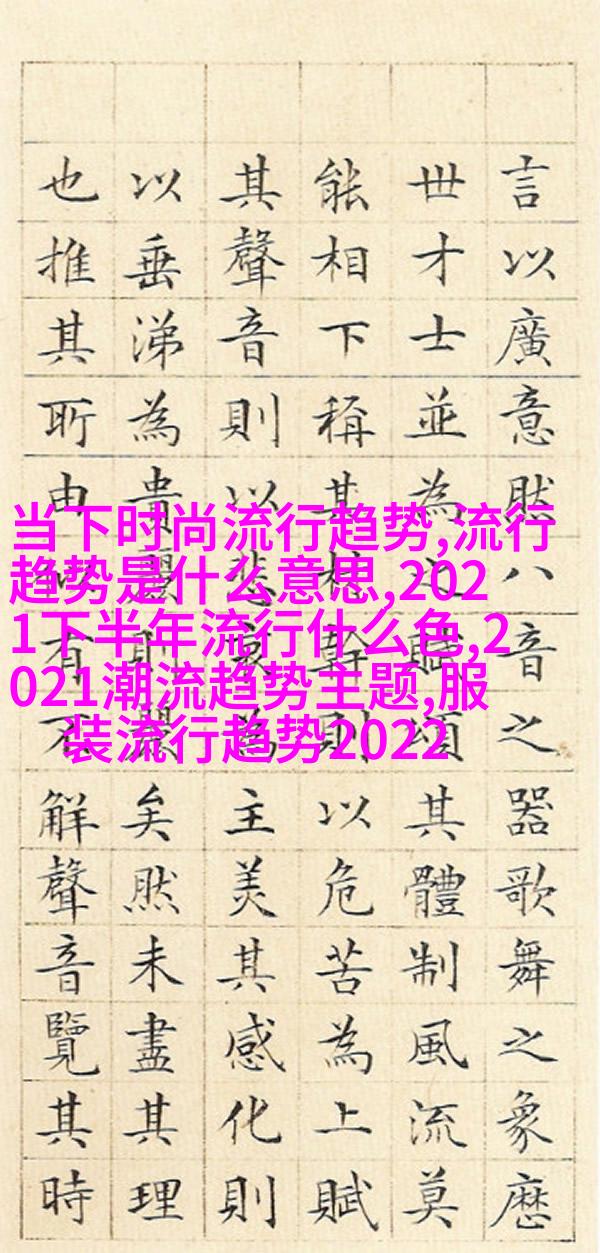 言以廣意然八音之器歌舞之象歷
世才士並為之賦頌其體制風流莫
能相下稱其材幹則以危苦為上賦
其聲音則以悲哀為主美其感化則
以垂涕為貴麗則麗矣然未盡其理
也推其所由似有不解聲音覽其時
当下时尚流行趋势,流行
趋势是什么意思,202
1下半年流行什么色,2
021潮流趋势主题,服
装流行趋势2022